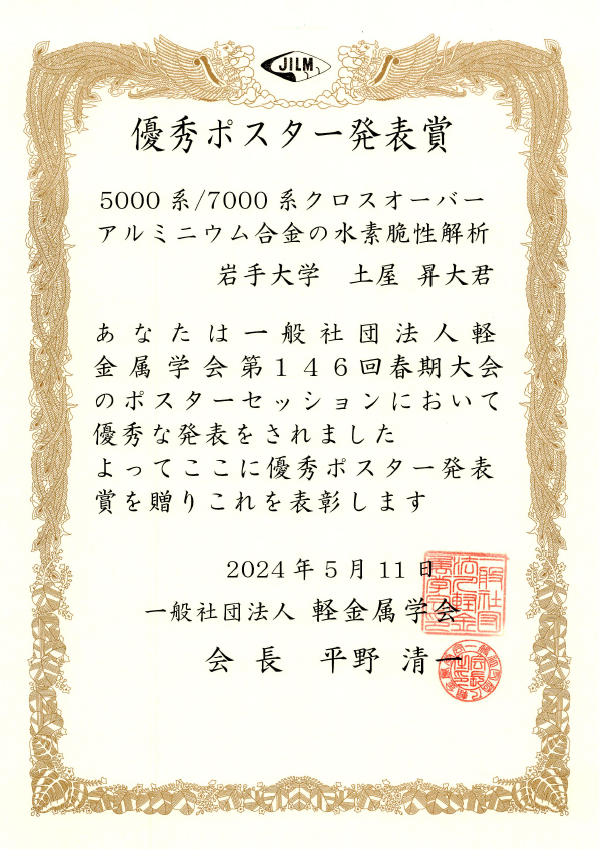 JILM
優秀ポスター発表賞
5000 系/7000 系クロスオーバー
アルミニウム合金の水素脆性解析
岩手大学 土屋 昇大君
あなたは一般社団法人軽
金属学会第146回春期大会
のポスターセッションにおいて
優秀な発表をされました
よってここに優秀ポスター発表
賞を贈りこれを表彰します
2024 年 5 月 11 日
一般社団法人 軽金属学会
会 長 平野 清一